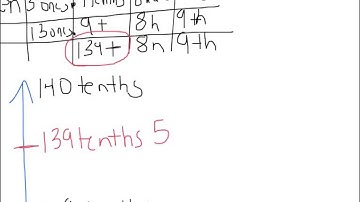 13 ones 9 t 8h 9 th
139 t 8h 9 th
140 tenths
139 tenths 5